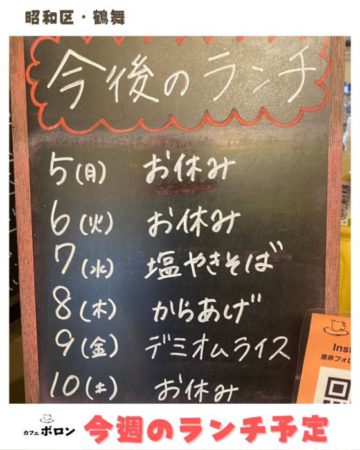 昭和区・鶴舞
今後のランチ
5(月) お休み
6(火) お休み
7(水) 塩やきそば
8(木) からあげ
9(金) デミオムライス
10(土) お休み
Inst
是非フォロ
カフェ ボロン 今週のランチ予定